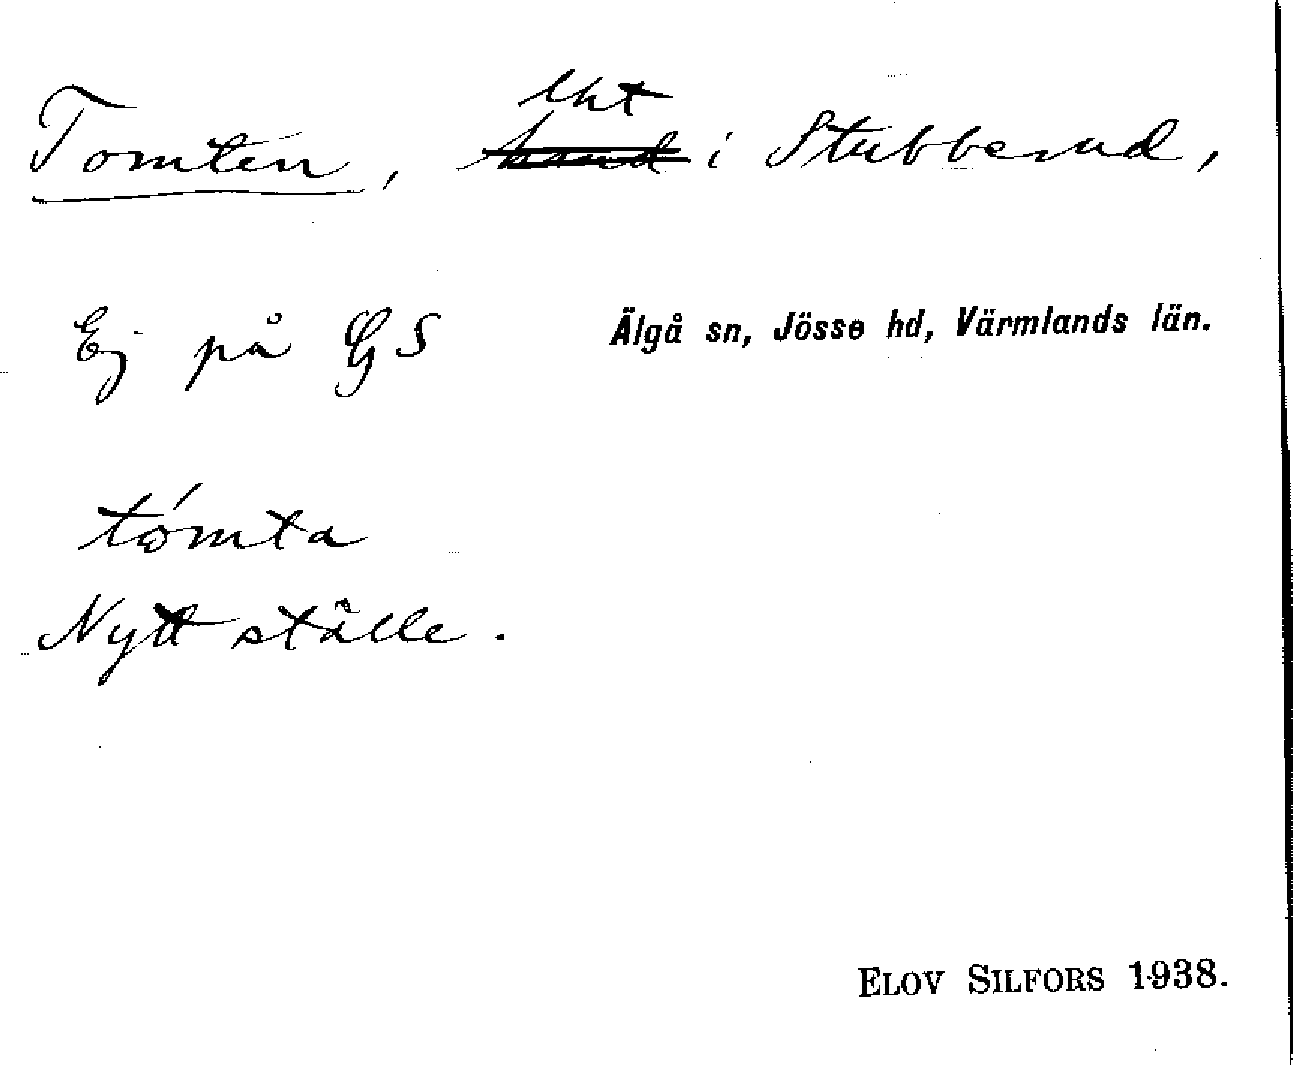 Tomten, lht i Stubberud,
Ej på GS Älgå sn, Jösse hd, Värmlands län.
tómta
Nytt ställe.
ELOV SILFORS 1938.